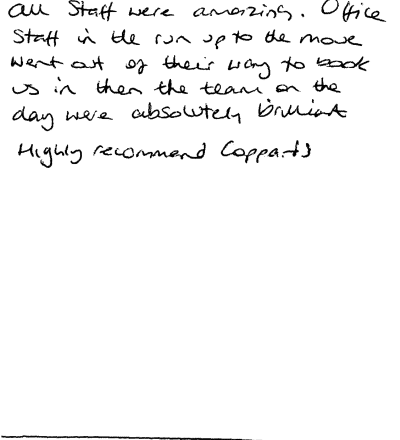 all Staff were amazing. Office
Staff in the run up to the move
went out of their way to book
us in then the team on the
day were absolutely brilliant
Highly recommend Coppards